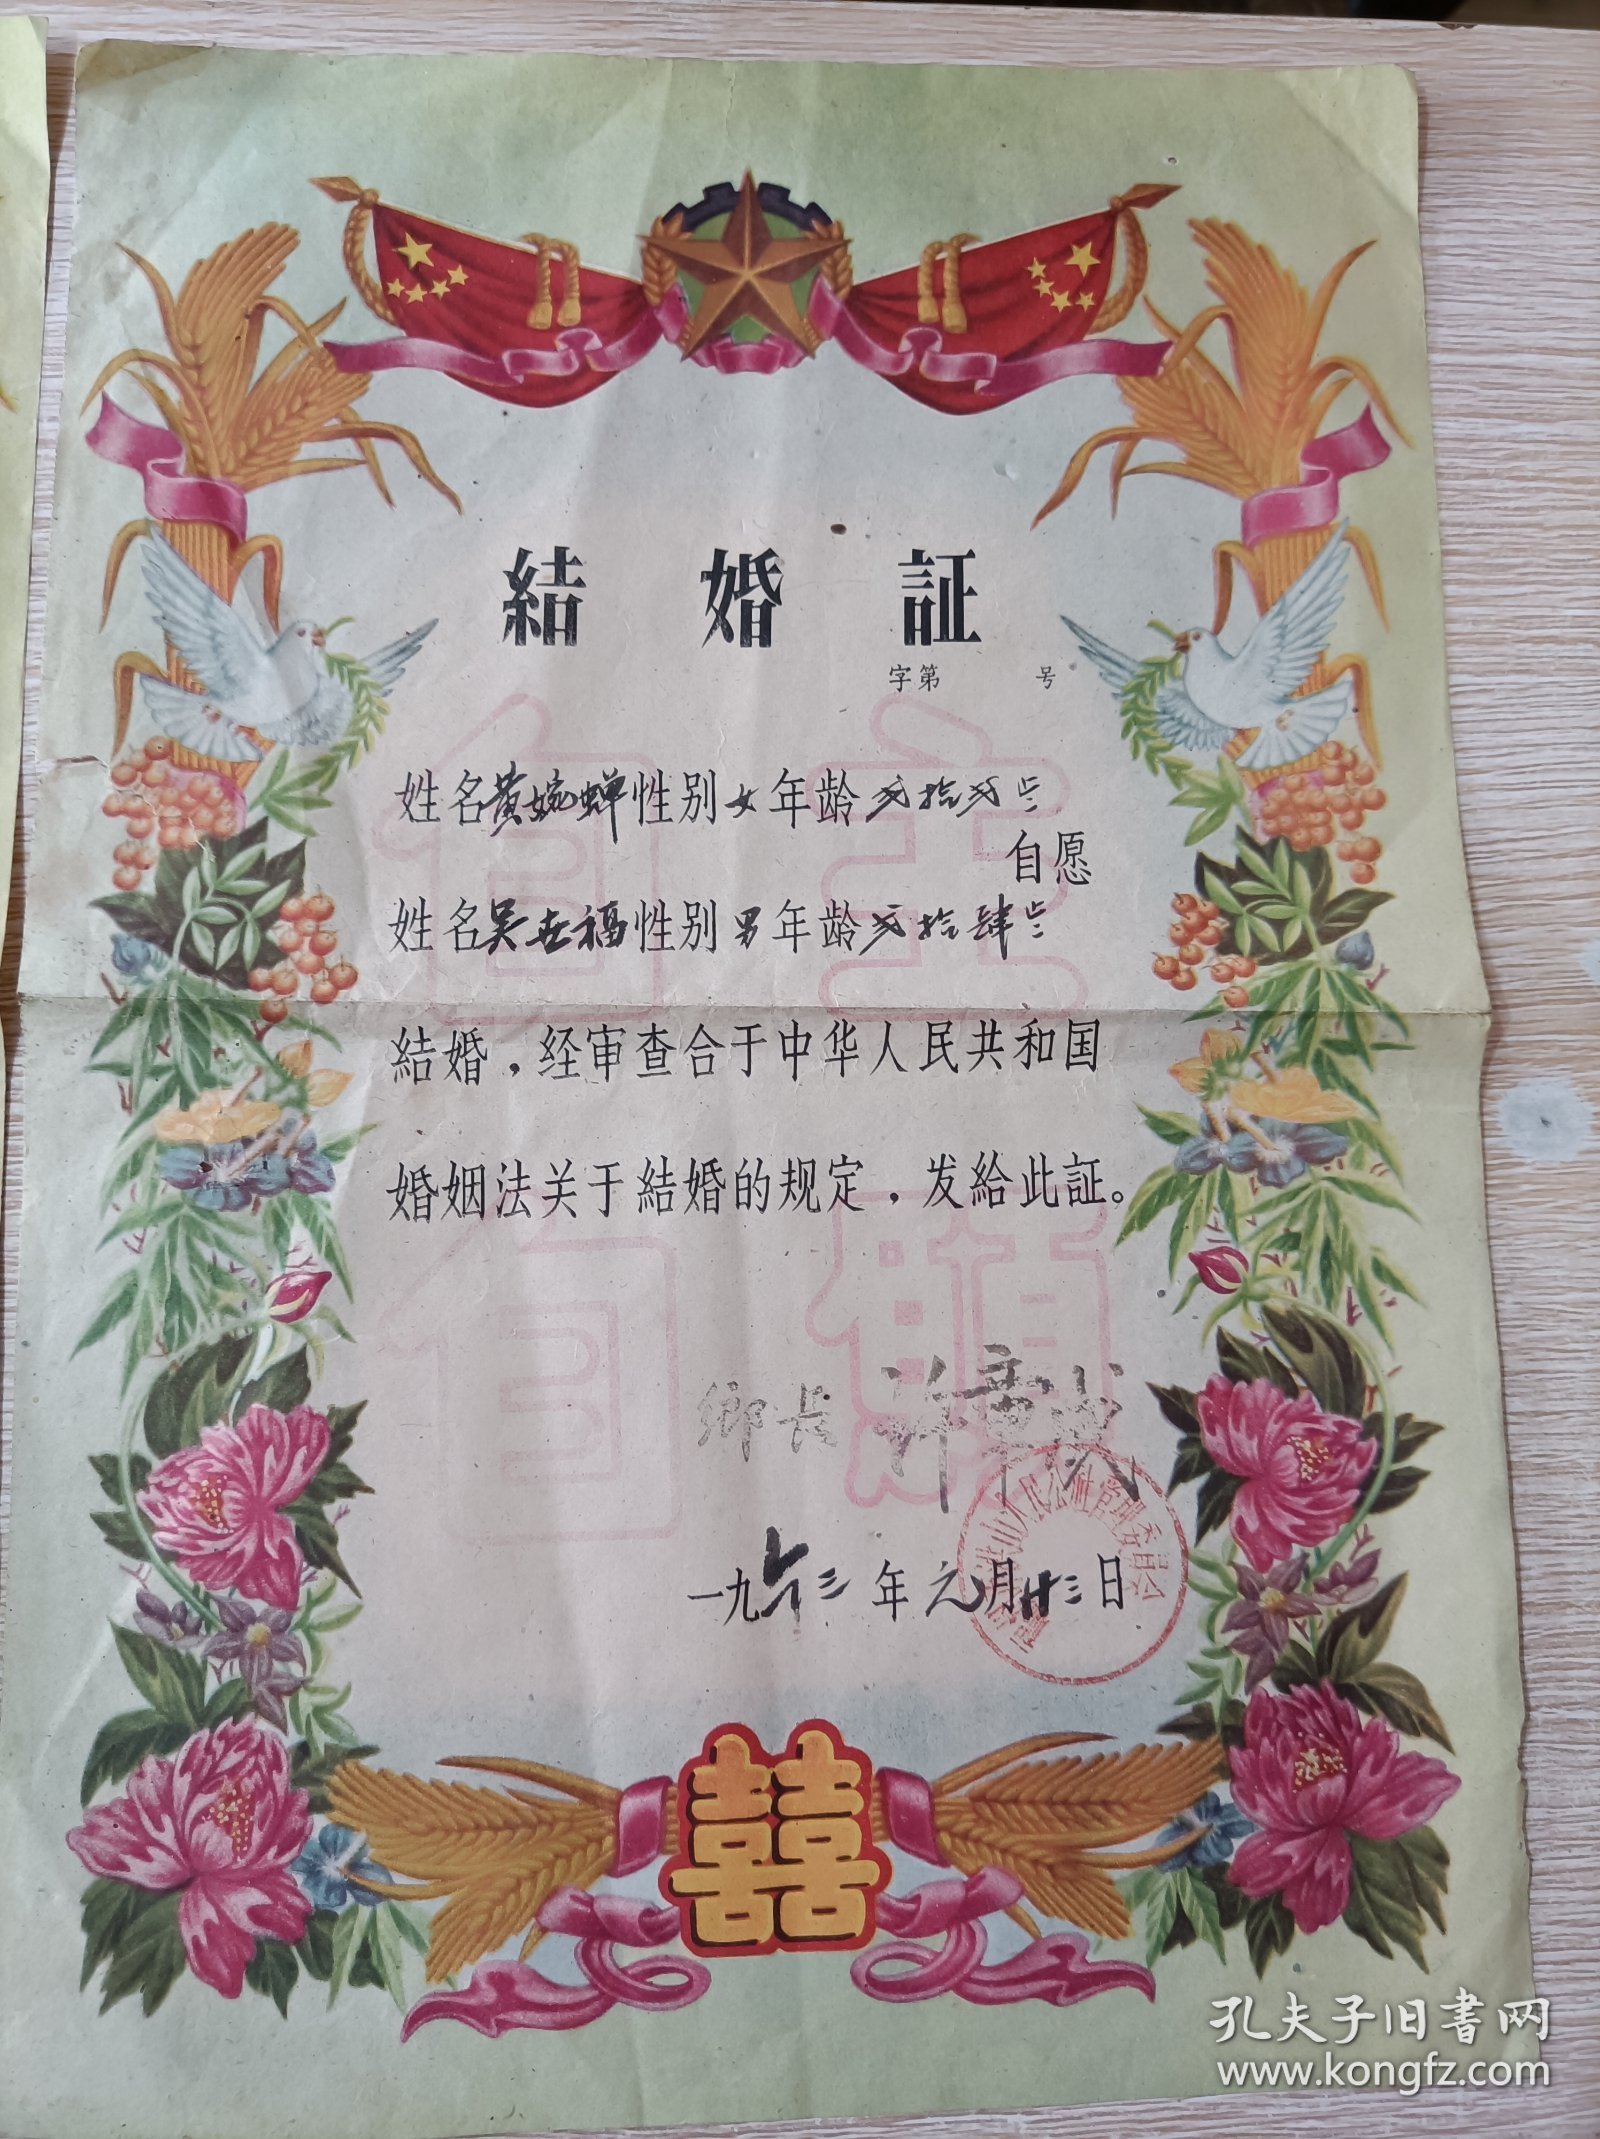 結婚証
字第 号
姓名黄婉蝉性别女年龄贰拾贰岁
自愿
姓名吴世福性别男年龄贰拾肆岁
結婚，经审查合于中华人民共和国
婚姻法关于結婚的规定，发給此証。
自主
自愿
鄉长 许
山人民公社管理委员会
一九六三年元月廿三日
囍
孔夫子旧書网
www.kongfz.com